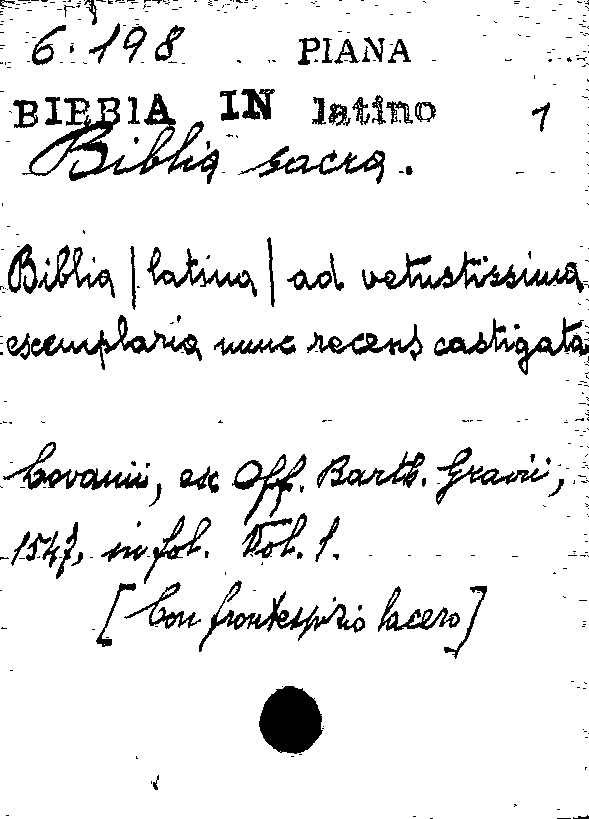 6.198 PIANA
BIBBIA IN latino 1
Biblia sacra.
Biblia | latina | ad vetustissima
exemplaria nunc recens castigata
Lovanii, ex Off. Barth. Gravii,
1547, in fol. Vol. 1.
[Con frontespizio lacero]